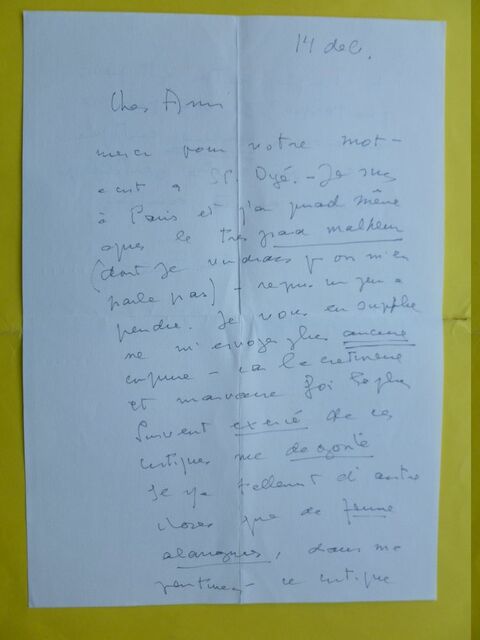 14 dec.
Cher Ami
merci pour votre mot -
St. Dyé. - Je suis
à Paris et j'ai quand même
après le très grand malheur
(dont je voudrais qu'on m'en
parle pas) -
peindre. Je vous en supplie
ne m'envoyez plus aucune
coupure - car le crétinerie
et mauvaise foi le plus
souvent de ces
critiques me dégoute
Il y a tellement d'autre
choses que de femme
, dans me
peintures - ce critique